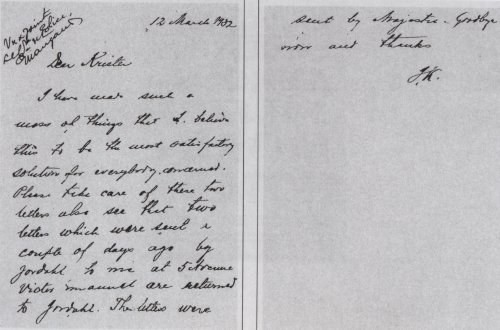 12 March 1932
Dear Krister
I have made such a
mess of things that I believe
this to be the most satisfactory
solution for everybody concerned.
Please take care of these two
letters also see that two
letters which were sent a
couple of days ago by
Jordahl to me at 5 Avenue
Victor Emanuel are returned
to Jordahl. The letters were
sent by Majestic - Goodbye
now and thanks
I.K.